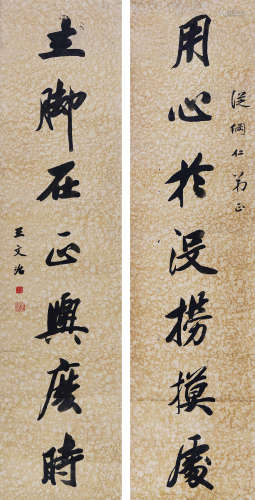 從綱仁弟正
用心於没撈摸處
立脚在正興麽時
王文治